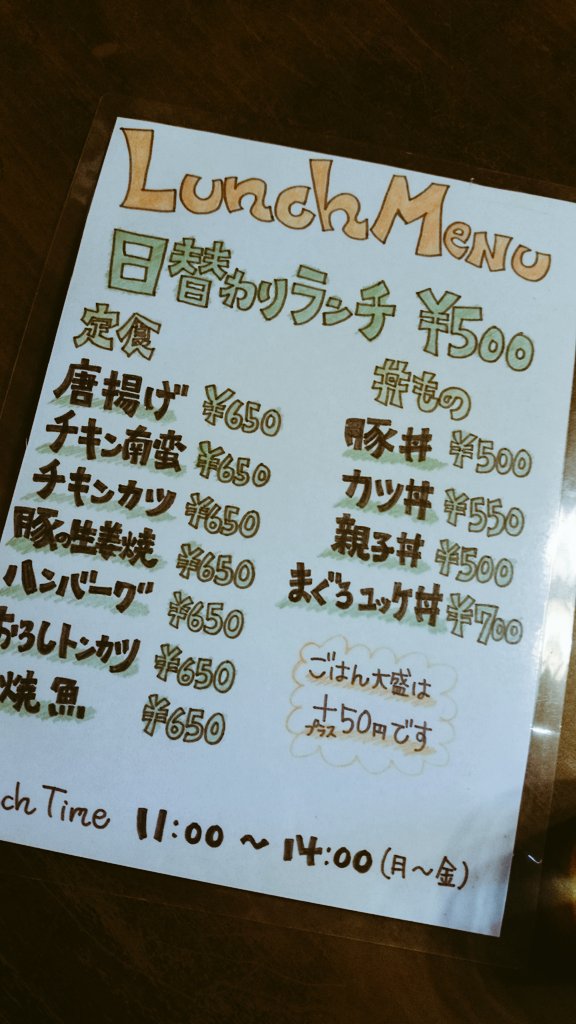 Lunch Menu
日替わりランチ ¥500
定食
唐揚げ ¥650
チキン南蛮 ¥650
チキンカツ ¥650
豚の生姜焼 ¥650
ハンバーグ ¥650
おろしトンカツ ¥650
焼魚 ¥650
丼もの
豚丼 ¥500
カツ丼 ¥550
親子丼 ¥500
まぐろユッケ丼 ¥700
ごはん大盛は
+50円です
プラス
ch Time 11:00 ~ 14:00 (月~金)